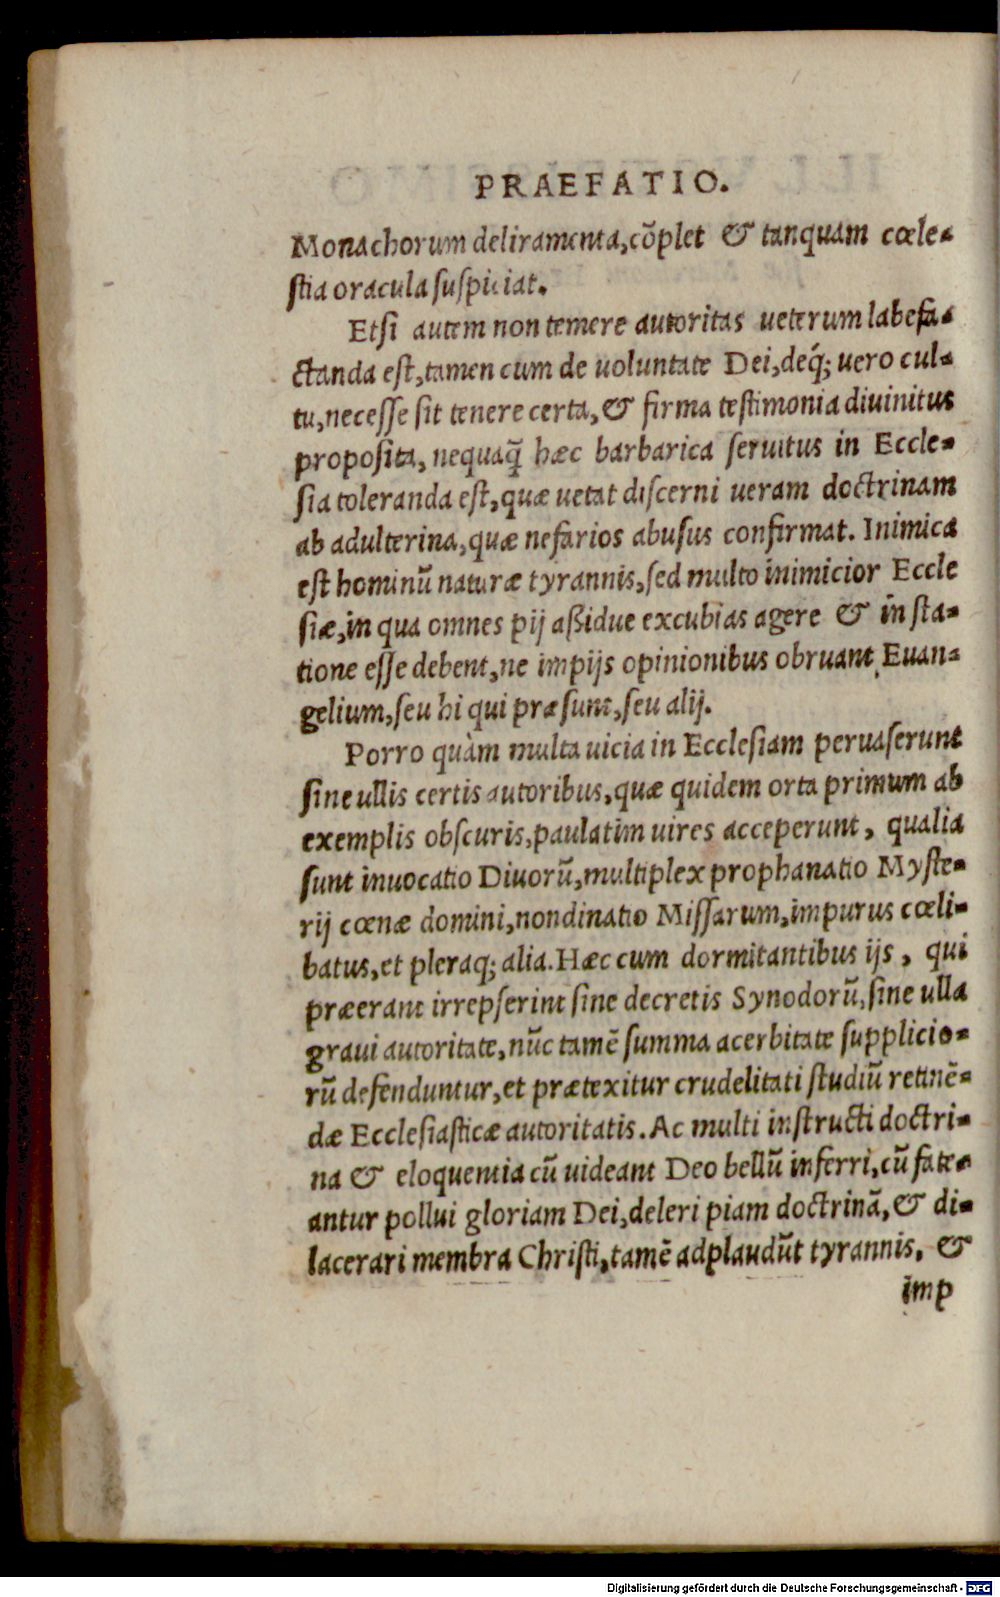 PRAEFATIO.
Monachorum deliramenta, cõplet & tanquam cœle-
stia oracula suspiciat.
Etsi autem non temere autoritas ueterum labefa-
ctanda est, tamen cum de uoluntate Dei, deq́; uero cul-
tu, necesse sit tenere certa, & firma testimonia diuinitus
proposita, nequaq̃ hæc barbarica seruitus in Eccle-
sia toleranda est, quæ uetat discerni ueram doctrinam
ab adulterina, quæ nefarios abusus confirmat. Inimica
est hominũ naturæ tyrannis, sed multo inimicior Eccle
siæ, in qua omnes pij aßidue excubias agere & in sta-
tione esse debent, ne impijs opinionibus obruant Euan-
gelium, seu hi qui præsunt, seu alij.
Porro quàm multa uicia in Ecclesiam peruaserunt
sine ullis certis autoribus, quæ quidem orta primum ab
exemplis obscuris, paulatim uires acceperunt, qualia
sunt inuocatio Diuorũ, multiplex prophanatio Myste-
rij cœnæ domini, nondinatio Missarum, impurus cœli-
batus, et pleraq; alia. Hæc cum dormitantibus ijs, qui
præerant irrepserint sine decretis Synodorũ, sine ulla
graui autoritate, nũc tamẽ summa acerbitate supplicio-
rũ defenduntur, et prætexitur crudelitati studiũ retinẽ-
dæ Ecclesiasticæ autoritatis. Ac multi instructi doctri-
na & eloquentia cũ uideant Deo bellũ inferri, cũ fate-
antur pollui gloriam Dei, deleri piam doctrinã, & di-
lacerari membra Christi, tamẽ adplaudũt tyrannis, &
imp
Digitalisierung gefördert durch die Deutsche Forschungsgemeinschaft - DFG